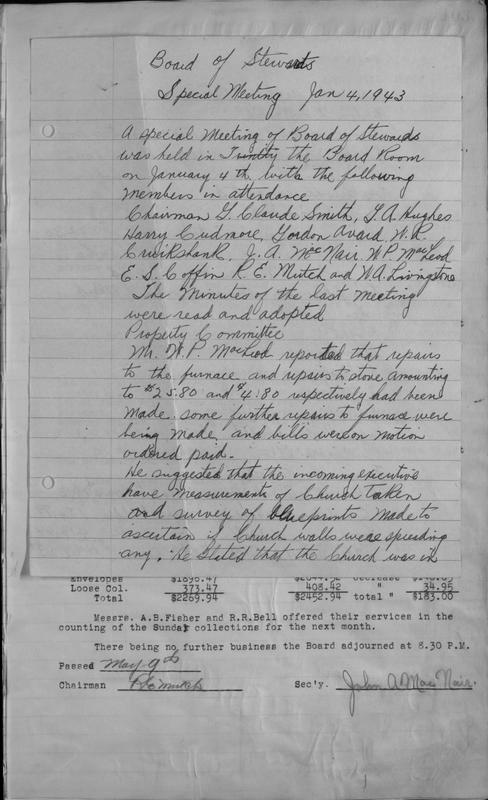 Board of Stewards
Special Meeting Jan 4, 1943
A special Meeting of Board of Stewards
was held in Trinity the Board Room
on January 4th with the following
members in attendance
Chairman G. Claude Smith, L. A. Hughes
Harry Cudmore, Gordon Avard W. R.
Cruikshank, J. A. McNair W P MacLeod
E. S. Coffin R. E. Mutch and W. A. Livingstone
The Minutes of the last Meeting
were read and adopted
Property Committee
Mr. W. P. MacLeod reported that repairs
to the furnace and repairs to stove amounting
to $25.80 and $4.80 respectively had been
made some further repairs to furnace were
being made, and bills were on motion
ordered paid.
He suggested that the incoming executive
have measurements of Church taken
and survey of blueprints made to
ascertain if Church walls were spreading
any. He stated that the Church was in
Envelopes $1896.47
Loose Col. 373.47 408.42 " 34.95
Total $2269.94 $2452.94 total " $183.00
Messrs. A.B.Fisher and R.R.Bell offered their services in the
counting of the Sunday collections for the next month.
There being no further business the Board adjourned at 8.30 P.M.
Passed May 9th
Chairman R E Mutch Sec'y. John A Mac Nair.